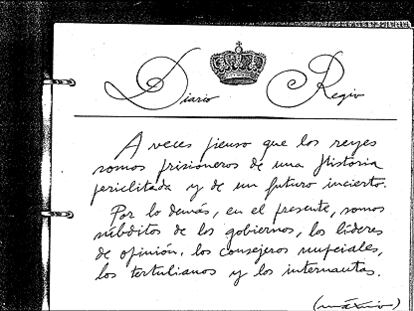 Diario Regio
A veces pienso que los reyes
somos prisioneros de una Historia
periclitada y de un futuro incierto.
Por lo demás, en el presente, somos
súbditos de los gobiernos, los líderes
de opinión, los consejos nupciales,
los tertulianos y los internautas.
(máximo)